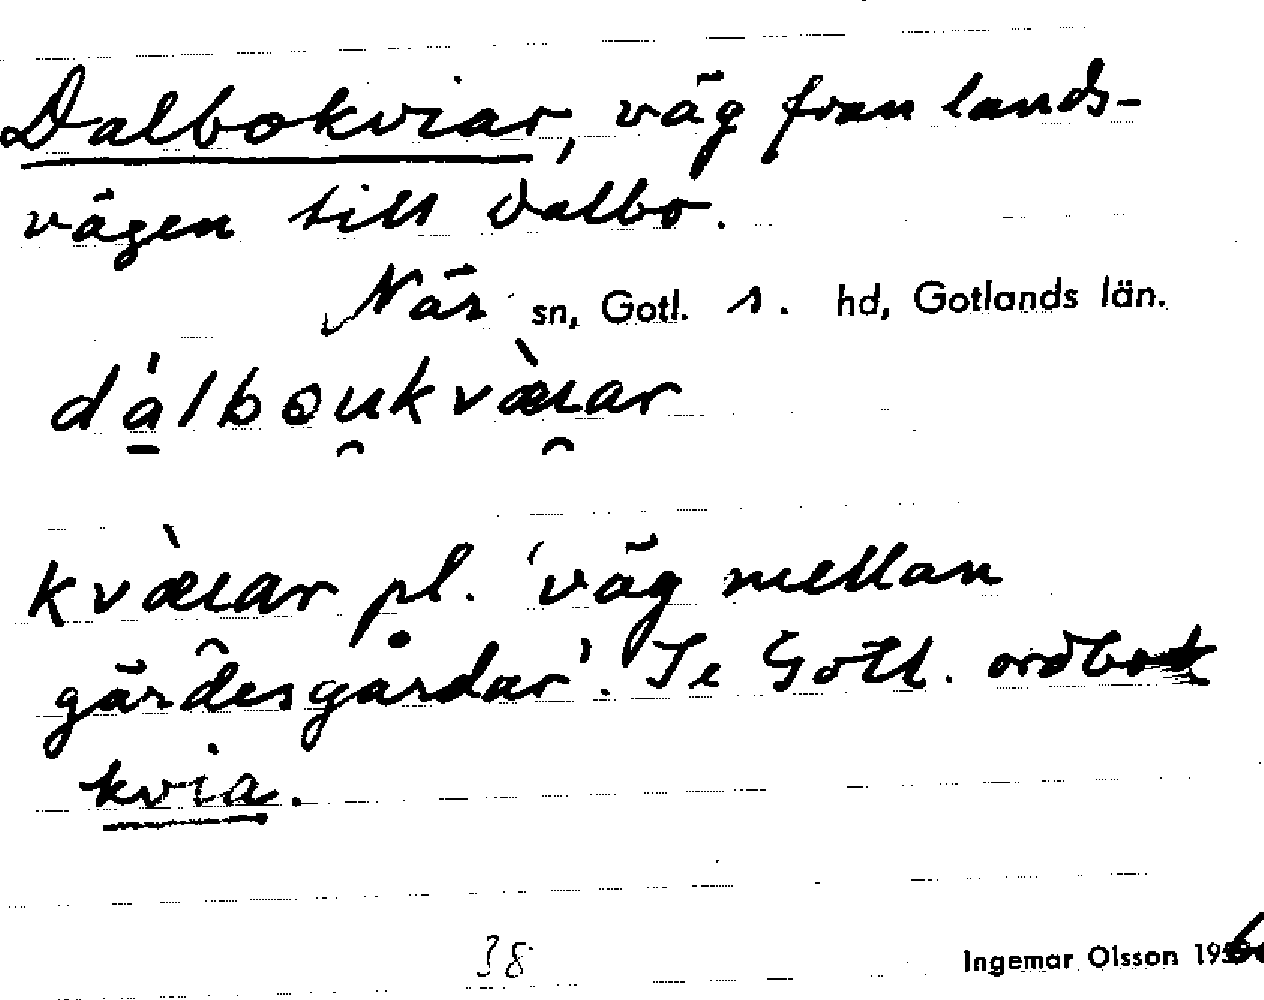 Dalbokviar, väg från lands-
vägen till Dalbo.
När sn, Gotl. s. hd, Gotlands län.
dálboukvæ̀ıar
kvæ̀ıar pl. 'väg mellan
gärdesgårdar'. Se Gotl. ordbok
kvia.
38
Ingemar Olsson